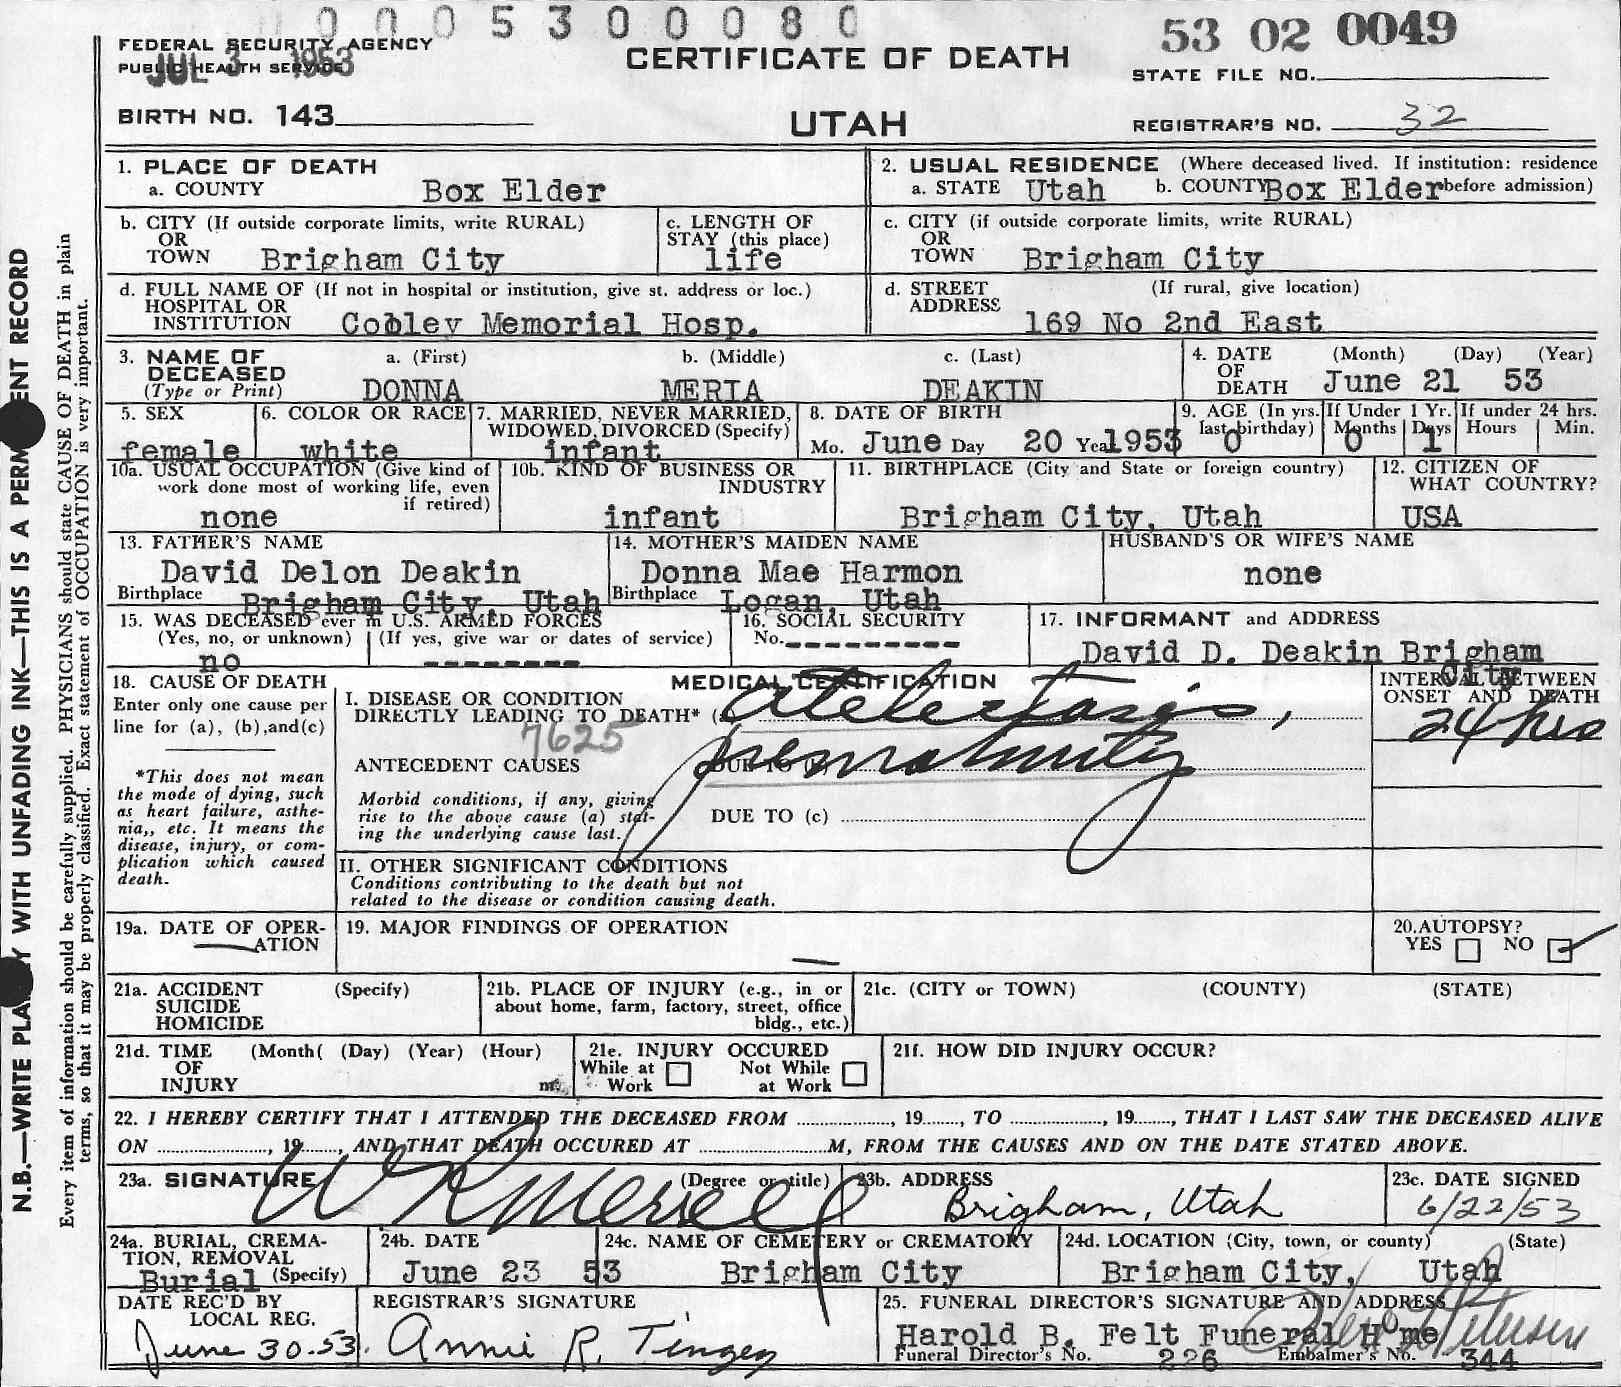 0 0 0 5 3 0 0 0 8 0
53 02 0049
FEDERAL SECURITY AGENCY
PUBLIC HEALTH SERVICE
JUL 3 1953
CERTIFICATE OF DEATH
STATE FILE NO.
BIRTH NO. 143
UTAH
REGISTRAR'S NO. 32
1. PLACE OF DEATH
a. COUNTY Box Elder
2. USUAL RESIDENCE (Where deceased lived. If institution: residence
a. STATE Utah b. COUNTY Box Elder before admission)
b. CITY (If outside corporate limits, write RURAL)
OR
TOWN Brigham City
c. LENGTH OF
STAY (this place)
life
c. CITY (if outside corporate limits, write RURAL)
OR
TOWN Brigham City
d. FULL NAME OF (If not in hospital or institution, give st. address or loc.)
HOSPITAL OR
INSTITUTION Cooley Memorial Hosp.
d. STREET (If rural, give location)
ADDRESS
169 No 2nd East
3. NAME OF
DECEASED
(Type or Print)
a. (First) b. (Middle) c. (Last)
DONNA MERIA DEAKIN
4. DATE (Month) (Day) (Year)
OF
DEATH June 21 53
5. SEX
female
6. COLOR OR RACE
white
7. MARRIED, NEVER MARRIED,
WIDOWED, DIVORCED (Specify)
infant
8. DATE OF BIRTH
Mo. June Day 20 Year 1953
9. AGE (In yrs.
last birthday)
0
If Under 1 Yr.
Months Days
0 1
If under 24 hrs.
Hours Min.
10a. USUAL OCCUPATION (Give kind of
work done most of working life, even
if retired)
none
10b. KIND OF BUSINESS OR
INDUSTRY
infant
11. BIRTHPLACE (City and State or foreign country)
Brigham City, Utah
12. CITIZEN OF
WHAT COUNTRY?
USA
13. FATHER'S NAME
David Delon Deakin
Birthplace Brigham City, Utah
14. MOTHER'S MAIDEN NAME
Donna Mae Harmon
Birthplace Logan, Utah
HUSBAND'S OR WIFE'S NAME
none
15. WAS DECEASED ever in U.S. ARMED FORCES
(Yes, no, or unknown) (If yes, give war or dates of service)
no --------
16. SOCIAL SECURITY
No. ---------
17. INFORMANT and ADDRESS
David D. Deakin Brigham
City
18. CAUSE OF DEATH
Enter only one cause per
line for (a), (b), and (c)
*This does not mean
the mode of dying, such
as heart failure, asthe-
nia,, etc. It means the
disease, injury, or com-
plication which caused
death.
MEDICAL CERTIFICATION
I. DISEASE OR CONDITION
DIRECTLY LEADING TO DEATH* (a) atelectasis,
7625
ANTECEDENT CAUSES
DUE TO (b) prematurity
Morbid conditions, if any, giving
rise to the above cause (a) stat-
ing the underlying cause last.
DUE TO (c)
INTERVAL BETWEEN
ONSET AND DEATH
24 hrs
II. OTHER SIGNIFICANT CONDITIONS
Conditions contributing to the death but not
related to the disease or condition causing death.
19a. DATE OF OPER-
ATION
19. MAJOR FINDINGS OF OPERATION
20. AUTOPSY?
YES NO
21a. ACCIDENT (Specify)
SUICIDE
HOMICIDE
21b. PLACE OF INJURY (e.g., in or
about home, farm, factory, street, office
bldg., etc.)
21c. (CITY or TOWN) (COUNTY) (STATE)
21d. TIME (Month( (Day) (Year) (Hour)
OF
INJURY m.
21e. INJURY OCCURED
While at Not While
Work at Work
21f. HOW DID INJURY OCCUR?
22. I HEREBY CERTIFY THAT I ATTENDED THE DECEASED FROM , 19 , TO , 19 , THAT I LAST SAW THE DECEASED ALIVE
ON , 19 , AND THAT DEATH OCCURED AT M, FROM THE CAUSES AND ON THE DATE STATED ABOVE.
23a. SIGNATURE (Degree or title)
W R Merrell
23b. ADDRESS
Brigham, Utah
23c. DATE SIGNED
6/22/53
24a. BURIAL, CREMA-
TION, REMOVAL
Burial (Specify)
24b. DATE
June 23 53
24c. NAME OF CEMETERY or CREMATORY
Brigham City
24d. LOCATION (City, town, or county) (State)
Brigham City, Utah
DATE REC'D BY
LOCAL REG.
June 30-53
REGISTRAR'S SIGNATURE
Annie R. Tingey
25. FUNERAL DIRECTOR'S SIGNATURE AND ADDRESS
Harold B. Felt Funeral Home
Funeral Director's No. 226 Embalmer's No. 344
N.B.—WRITE PLAINLY WITH UNFADING INK—THIS IS A PERMANENT RECORD
Every item of information should be carefully supplied. PHYSICIANS should state CAUSE OF DEATH in plain
terms, so that it may be properly classified. Exact statement of OCCUPATION is very important.